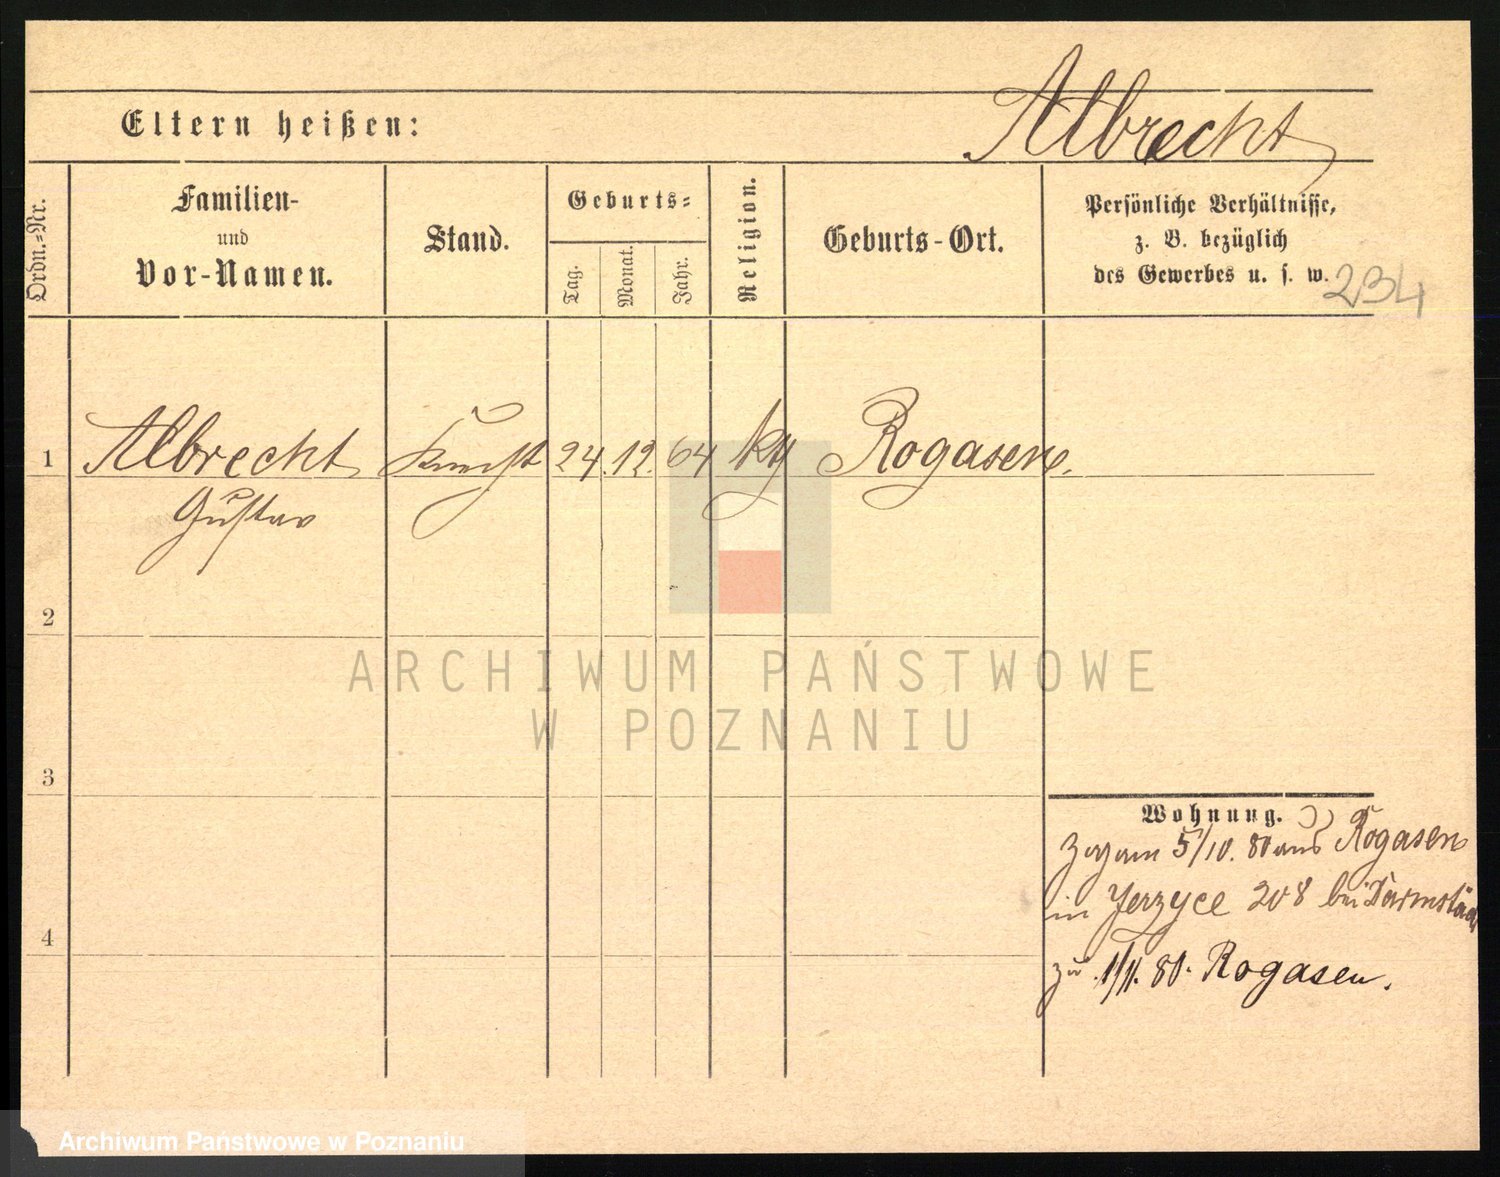 Albrecht
Eltern heißen:
Ordn.-Nr.
Familien-
und
Vor-Namen.
Stand.
Geburts-
Tag.
Monat.
Jahr.
Religion.
Geburts-Ort.
Persönliche Verhältnisse,
z. B. bezüglich
des Gewerbes u. s. w.
234
1 Albrecht 24. 12. 64 Rogasen.
Gustav
2
3
4
ARCHIWUM PAŃSTWOWE
W POZNANIU
Wohnung.
5/10. 80 aus Rogasen
in Jerzyce 208 bei
zu 1/11. 80. Rogasen.
Archiwum Państwowe w Poznaniu